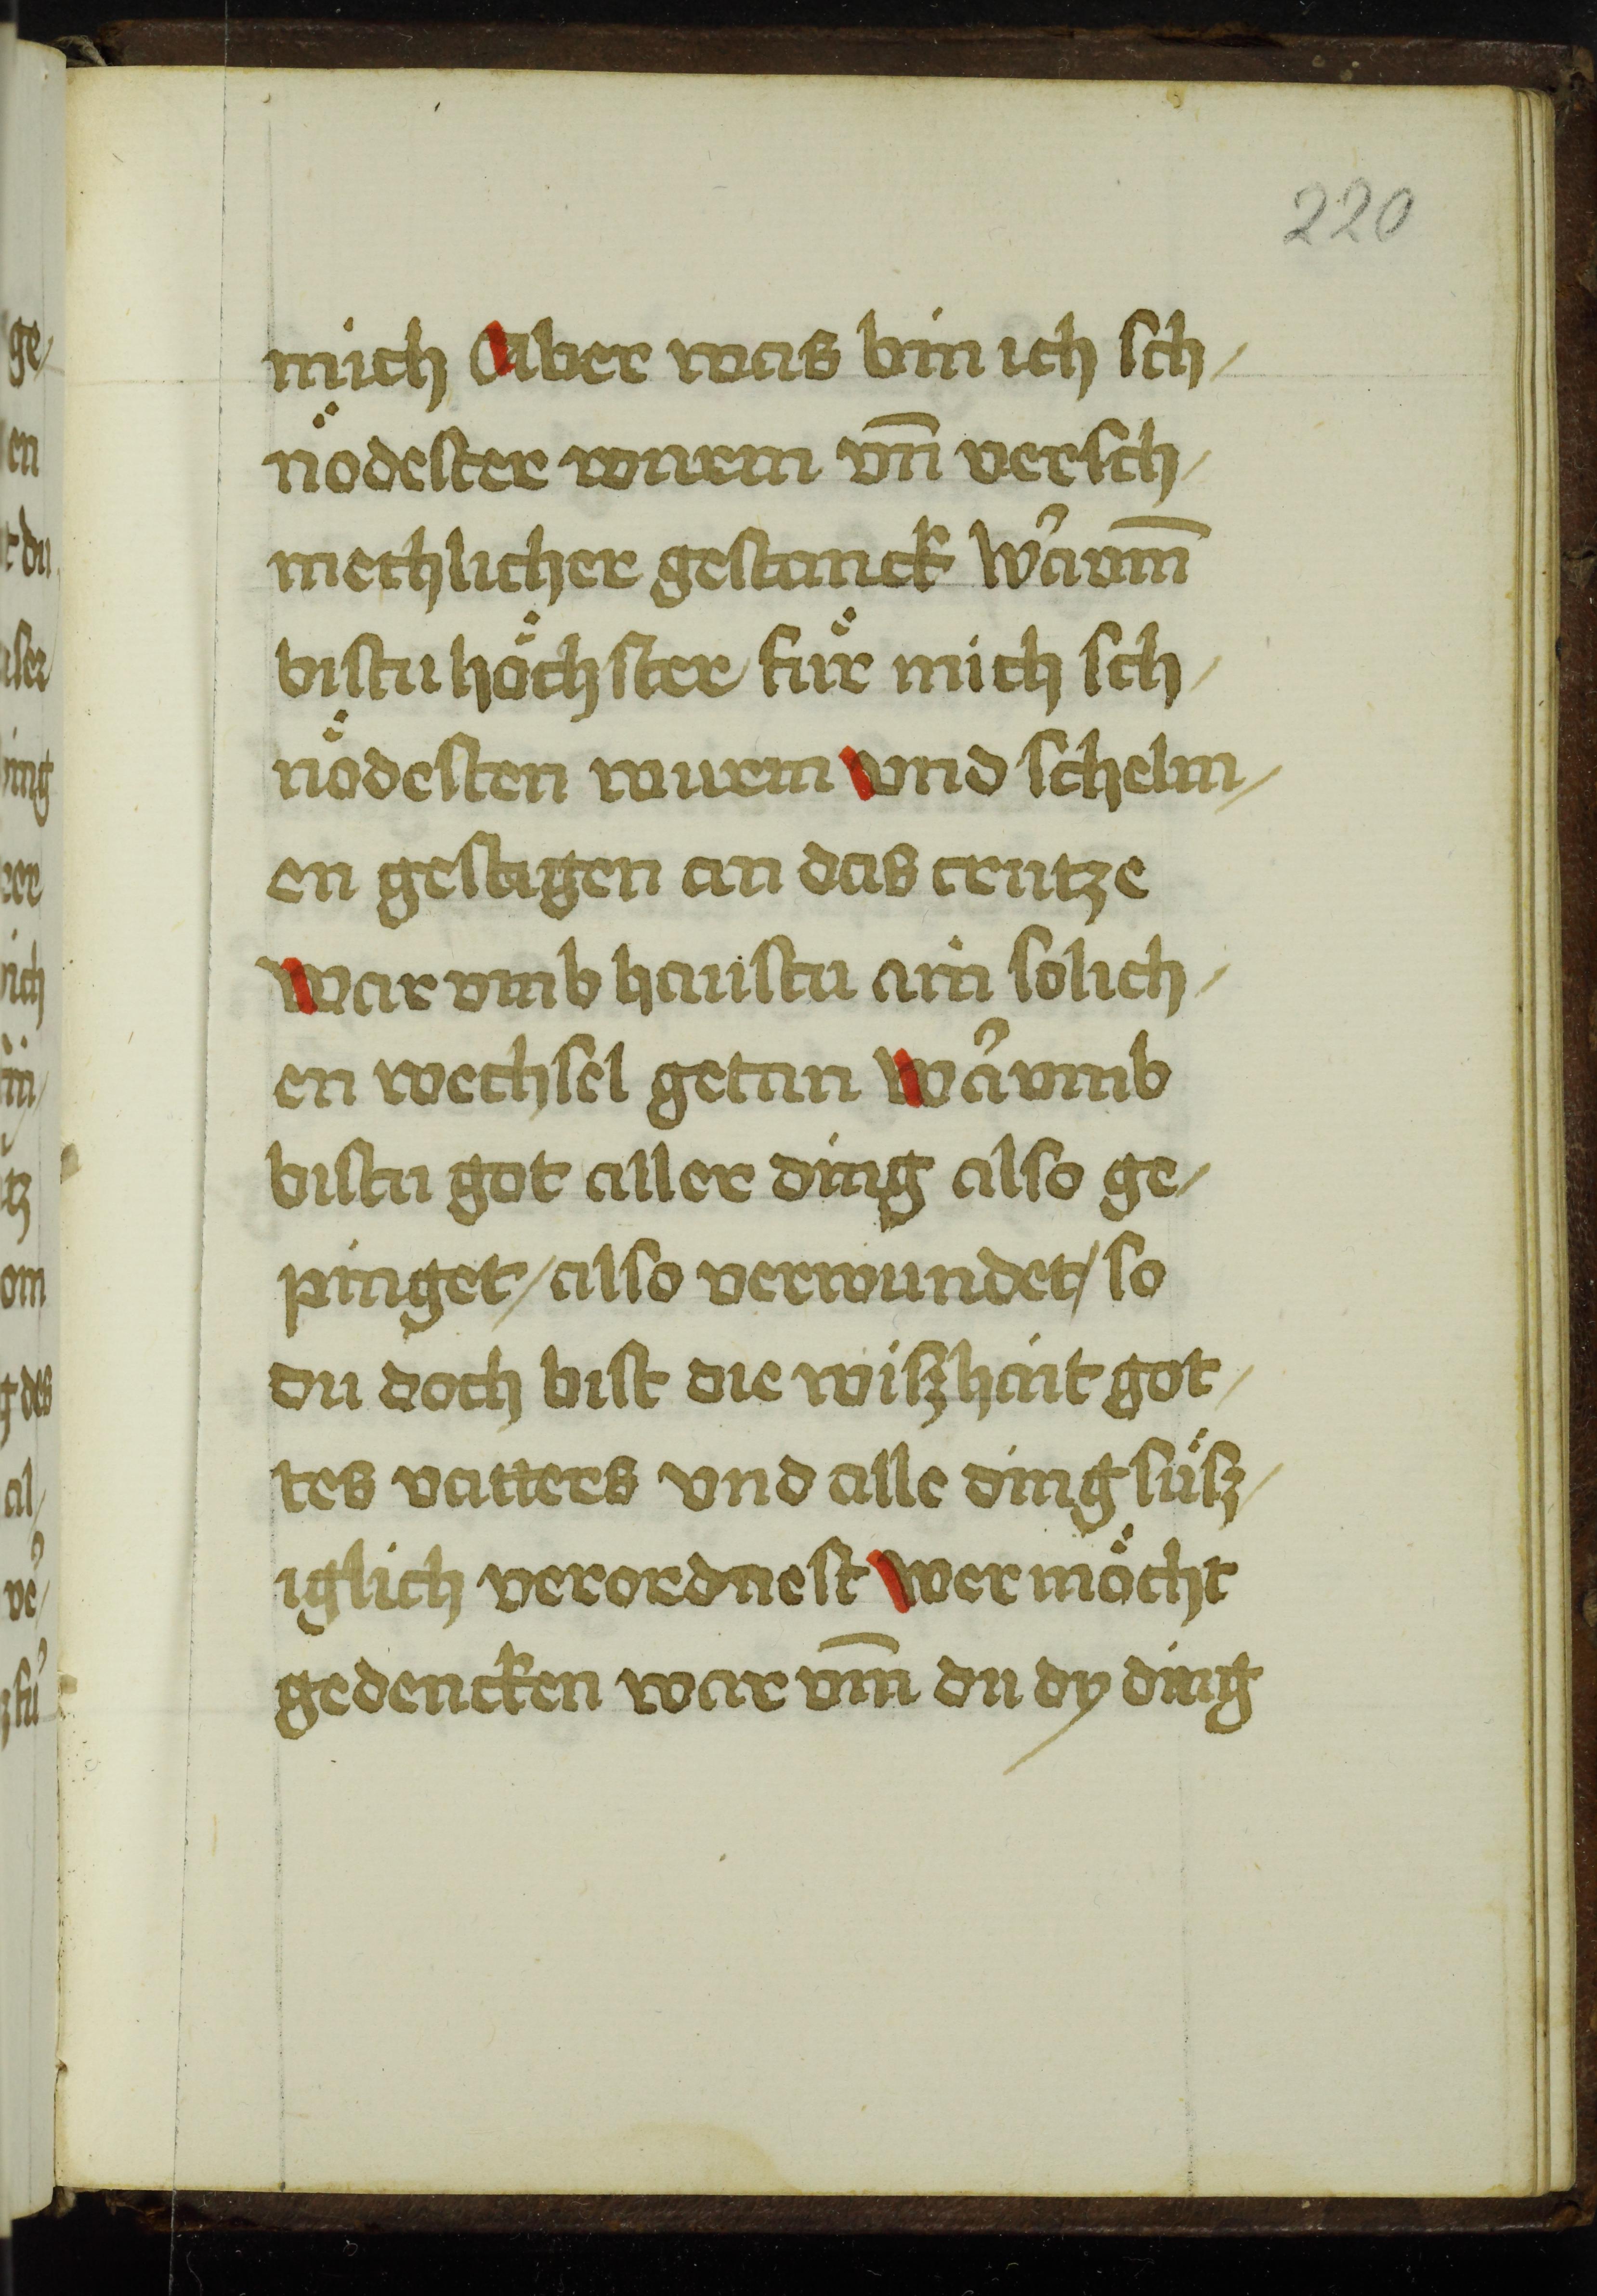 220
mich Aber was bin ich sch/
nödester wurm vn̄ versch/
mechlicher gestanck wa᷑vm̄
bistu höchster für mich sch/
nödesten wurm vnd schelm/
en gestigen an das crutze
war vmb haustu ain solich/
en wechsel getan wa᷑vmb
bistu got aller ding also ge/
pinget/also verwundet/so
du doch bist die wiszhait got/
tes vatters vnd alle ding süsz/
iglich verordnest wer möcht
gedencken war vm̄ du dy ding